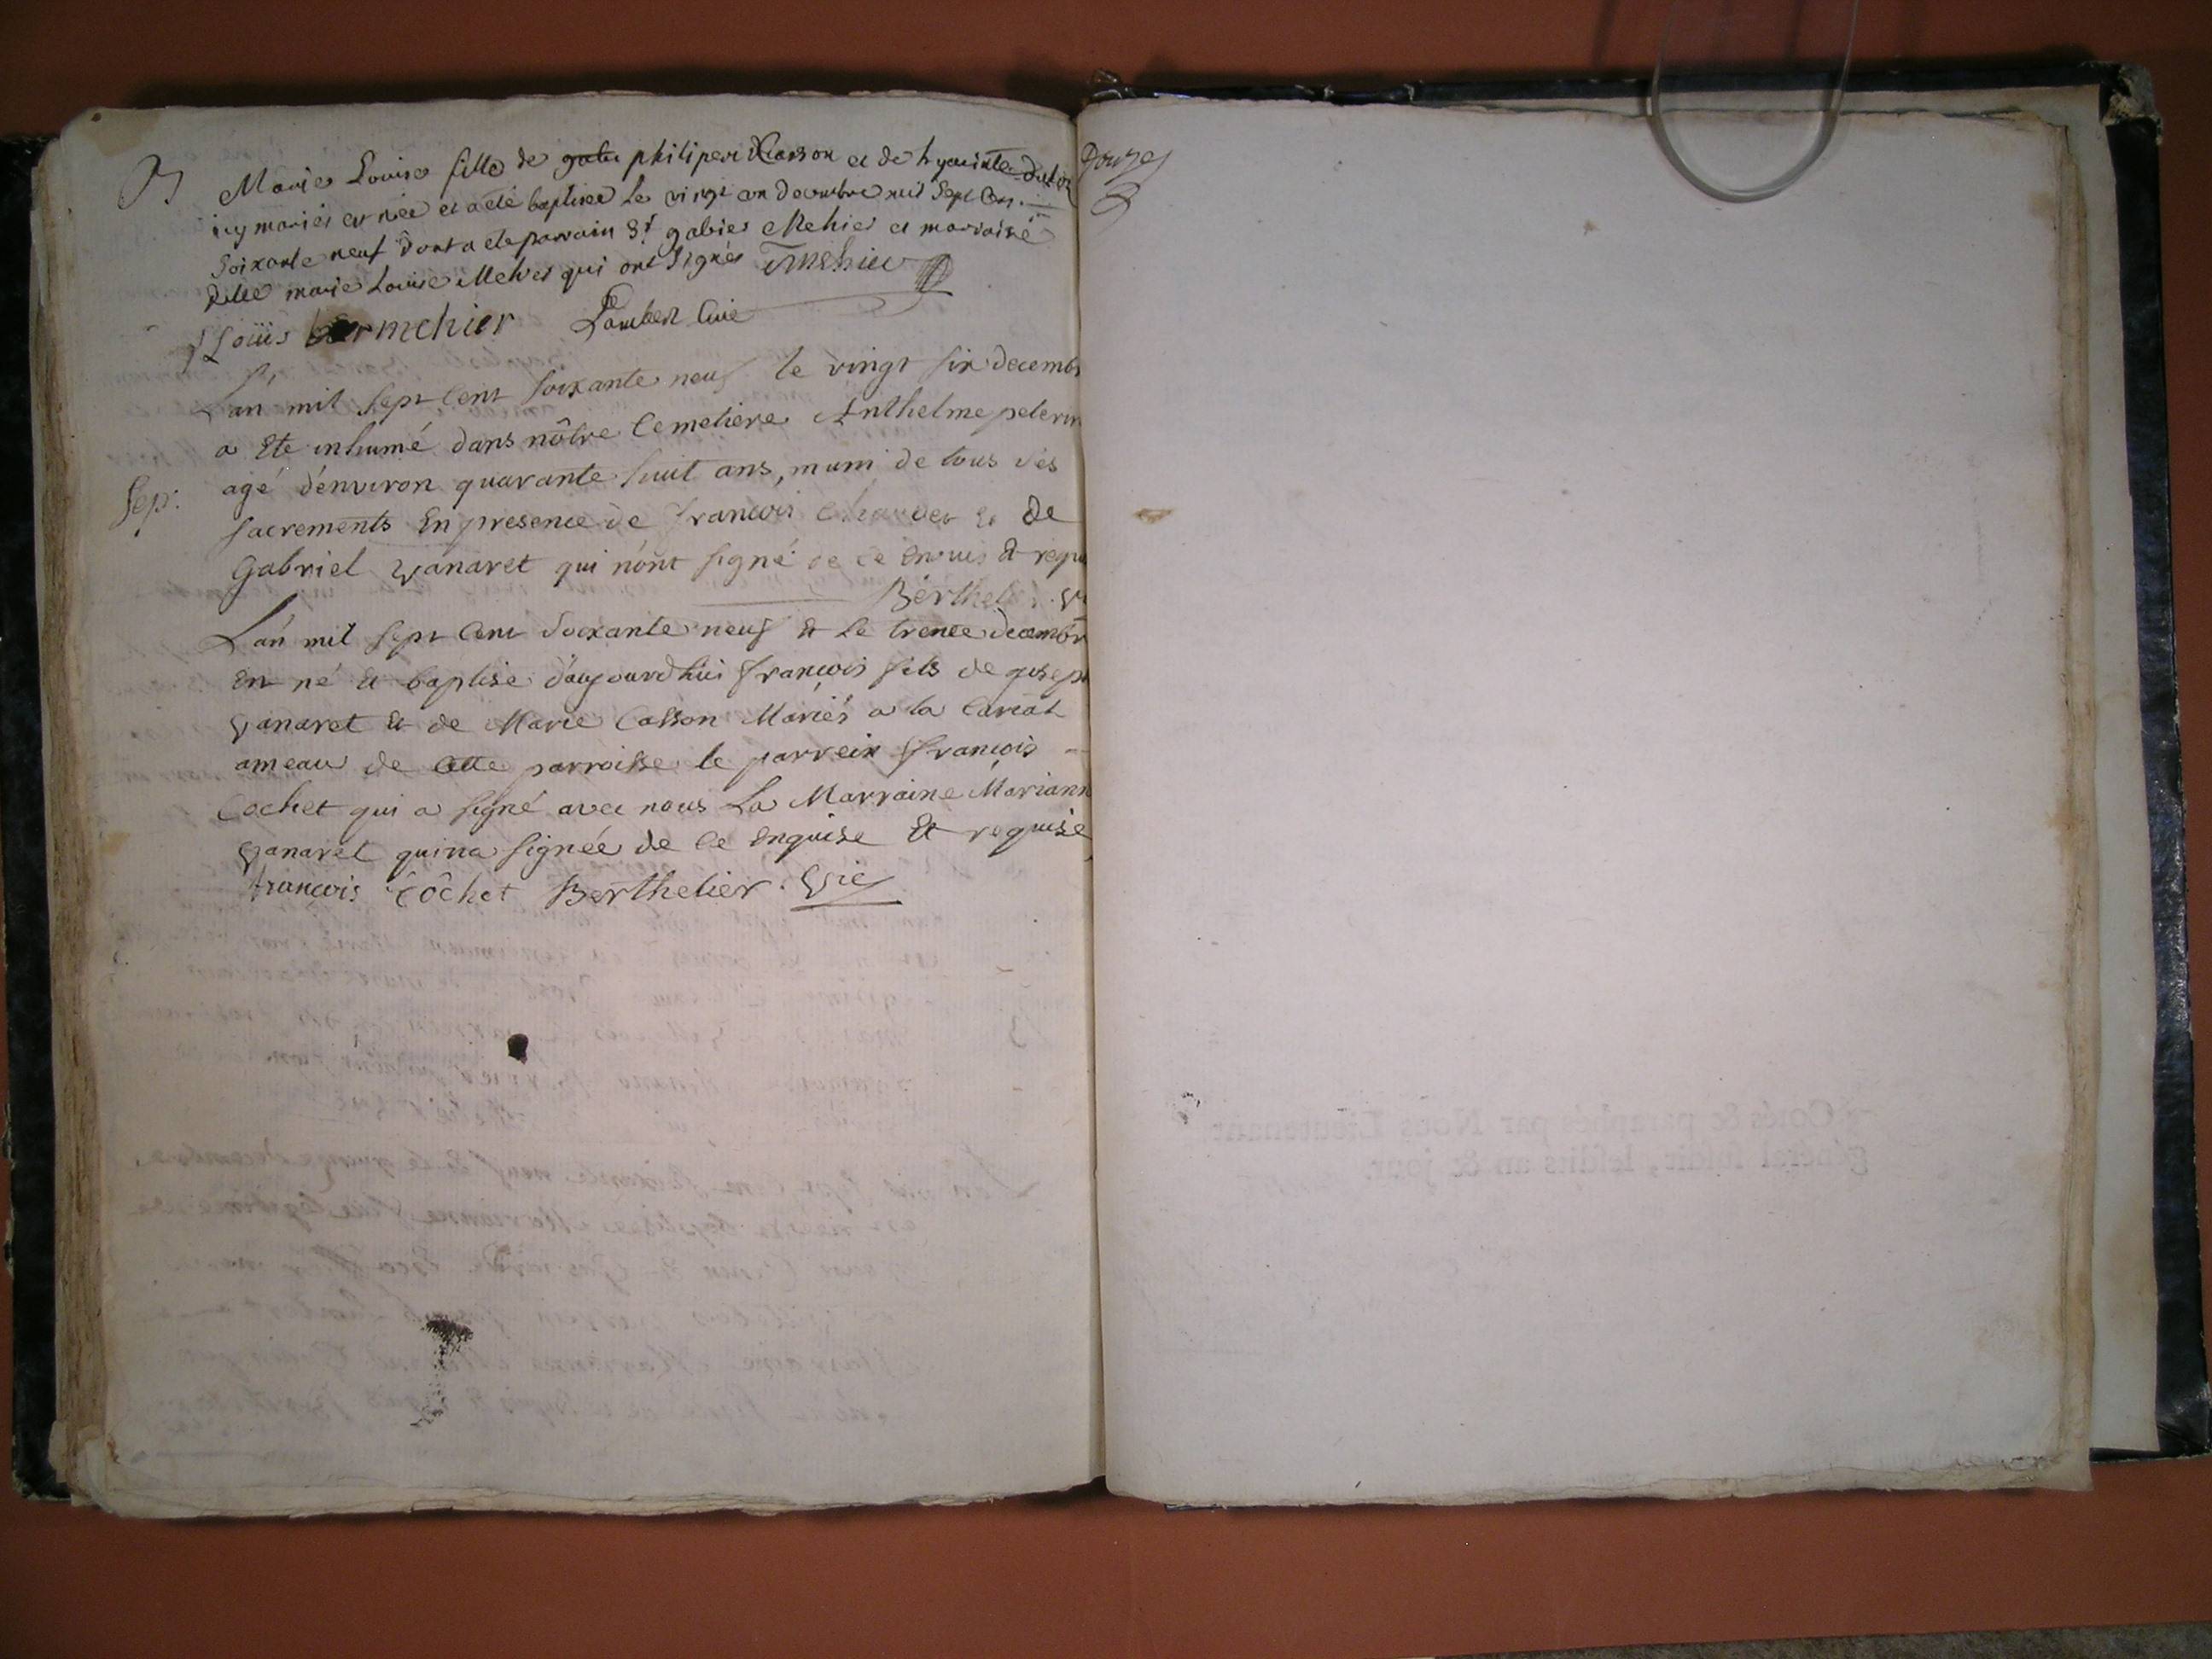 B
Marie Louise fille de philipert Casson et de hyacinte
icy mariés est née et a été baptisée le vingt un decembre mil Sept Cen
Soixante neuf dont a ete parrain Sr gabier Mehier et marraine
delle marie Louise Mehier qui ont signés
Loüis mehier Lambert Curé
Sep:
L'an mil sept cent soixante neuf le vingt six decemb
a Ete inhumé dans nôtre Cemetiere Anthelme pelerin
agé d'environ quarante huit ans, muni de tous ses
sacrements En presence de francois et de
Gabriel vanaret qui n'ont signé de ce enquis & requ
Berthelier
L'an mil sept cent soixante neuf & le trente decembr
Est né & baptisé d'aujourdhui françois fils de joseph
vanaret & de Marie Casson Mariés a la
ameau de cette parroisse le parrein françois
Cochet qui a signé avec nous La Marraine Mariann
vanaret qui n'a signée de ce enquise & requise
françois Côchet Berthelier vic
Douze
Cotés & paraphés par Nous Lieutenant
général susdit, lesdits an & jour.